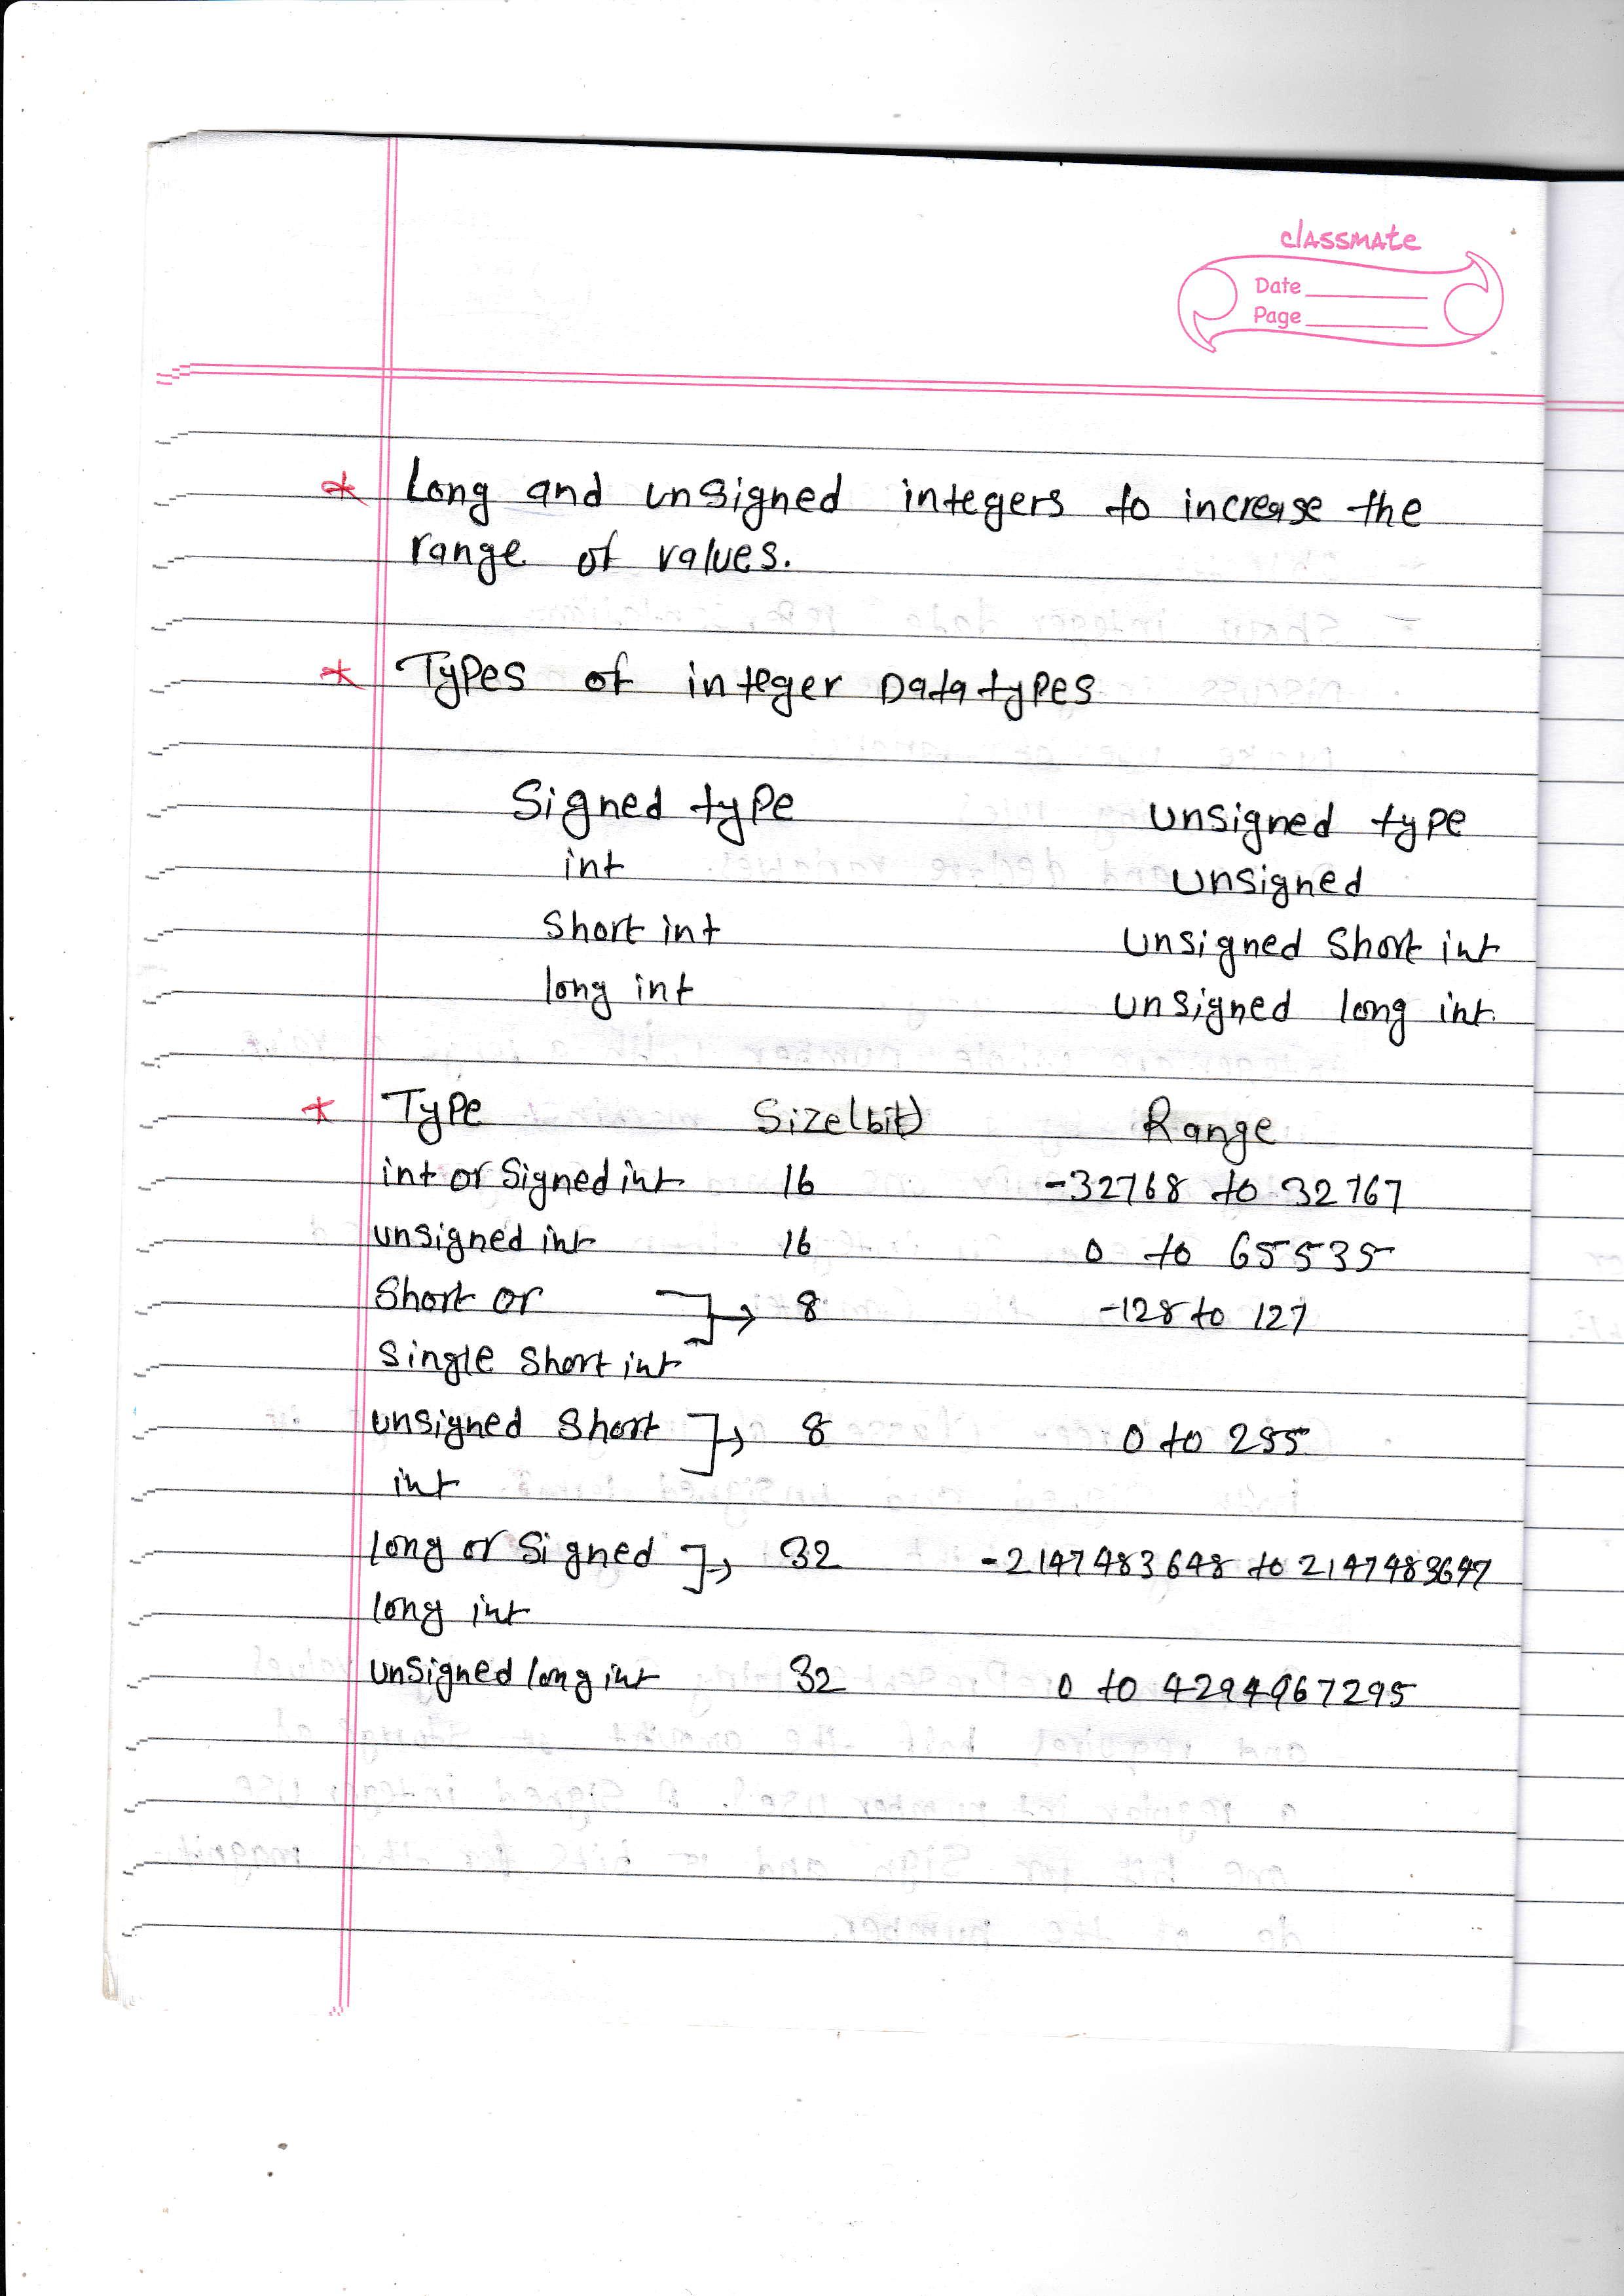 classmate
Date
Page
* Long and unsigned integers to increase the
range of values.
* Types of integer Data types
Signed type unsigned type
int unsigned
Short int unsigned Short int
long int unsigned long int.
* Type Size(bit) Range
int or Signed int 16 -32768 to 32767
unsigned int 16 0 to 65535
Short or 8 -128 to 127
Single Short int
unsigned Short 8 0 to 255
int
long or Signed 32 -2147483648 to 2147483647
long int
unsigned long int 32 0 to 4294967295